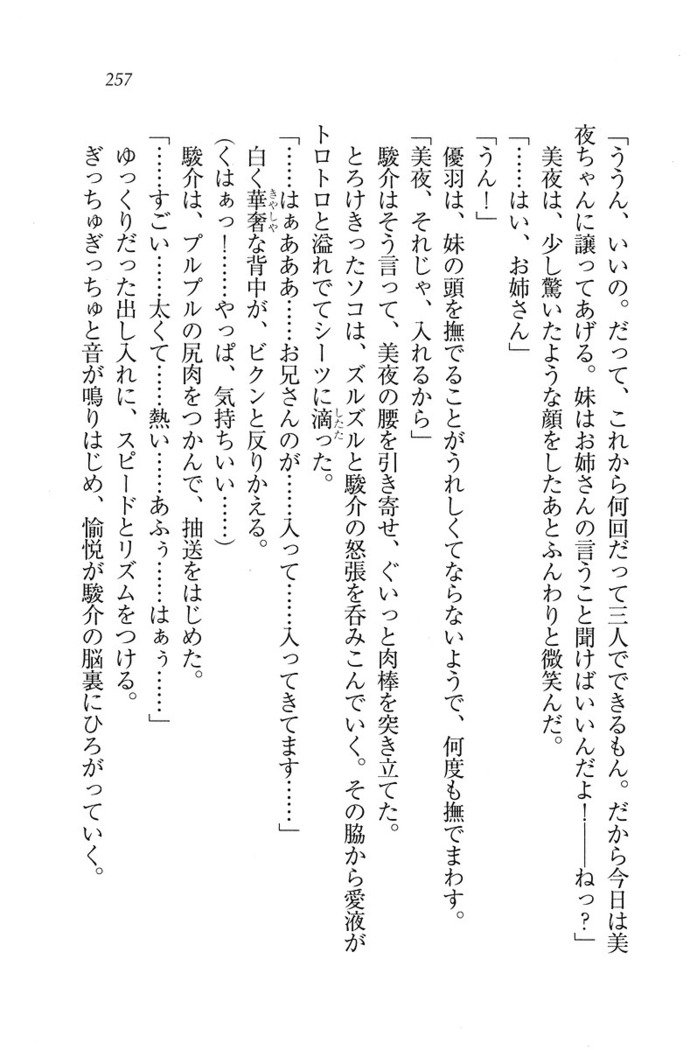 257
「ううん、いいの。だって、これから何回だって三人でできるもん。だから今日は美
夜ちゃんに譲ってあげる。妹はお姉さんの言うこと聞けばいいんだよ！――ねっ？」
美夜は、少し驚いたような顔をしたあとふんわりと微笑んだ。
「……はい、お姉さん」
「うん！」
優羽は、妹の頭を撫でることがうれしくてならないようで、何度も撫でまわす。
「美夜、それじゃ、入れるから」
駿介はそう言って、美夜の腰を引き寄せ、ぐいっと肉棒を突き立てた。
とろけきったソコは、ズルズルと駿介の怒張を呑みこんでいく。その脇から愛液が
トロトロと溢れでてシーツに滴った。
したた
「……はぁあああ……お兄さんのが……入って……入ってきてます……」
白く華奢な背中が、ビクンと反りかえる。
きゃしゃ
（くはぁっ！……やっぱ、気持ちいい……）
駿介は、プルプルの尻肉をつかんで、抽送をはじめた。
「……すごい……太くて……熱い……あふぅ……はぁぅ……」
ゆっくりだった出し入れに、スピードとリズムをつける。
ぎっちゅぎっちゅと音が鳴りはじめ、愉悦が駿介の脳裏にひろがっていく。